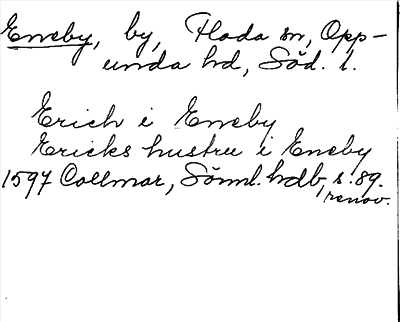 Eneby, by, Floda sn, Opp-
unda hd, Söd. l.
Erich i Eneby
Ericks hustru i Eneby
1597 Collmar, Sörml. hdb, s. 89.
renov.